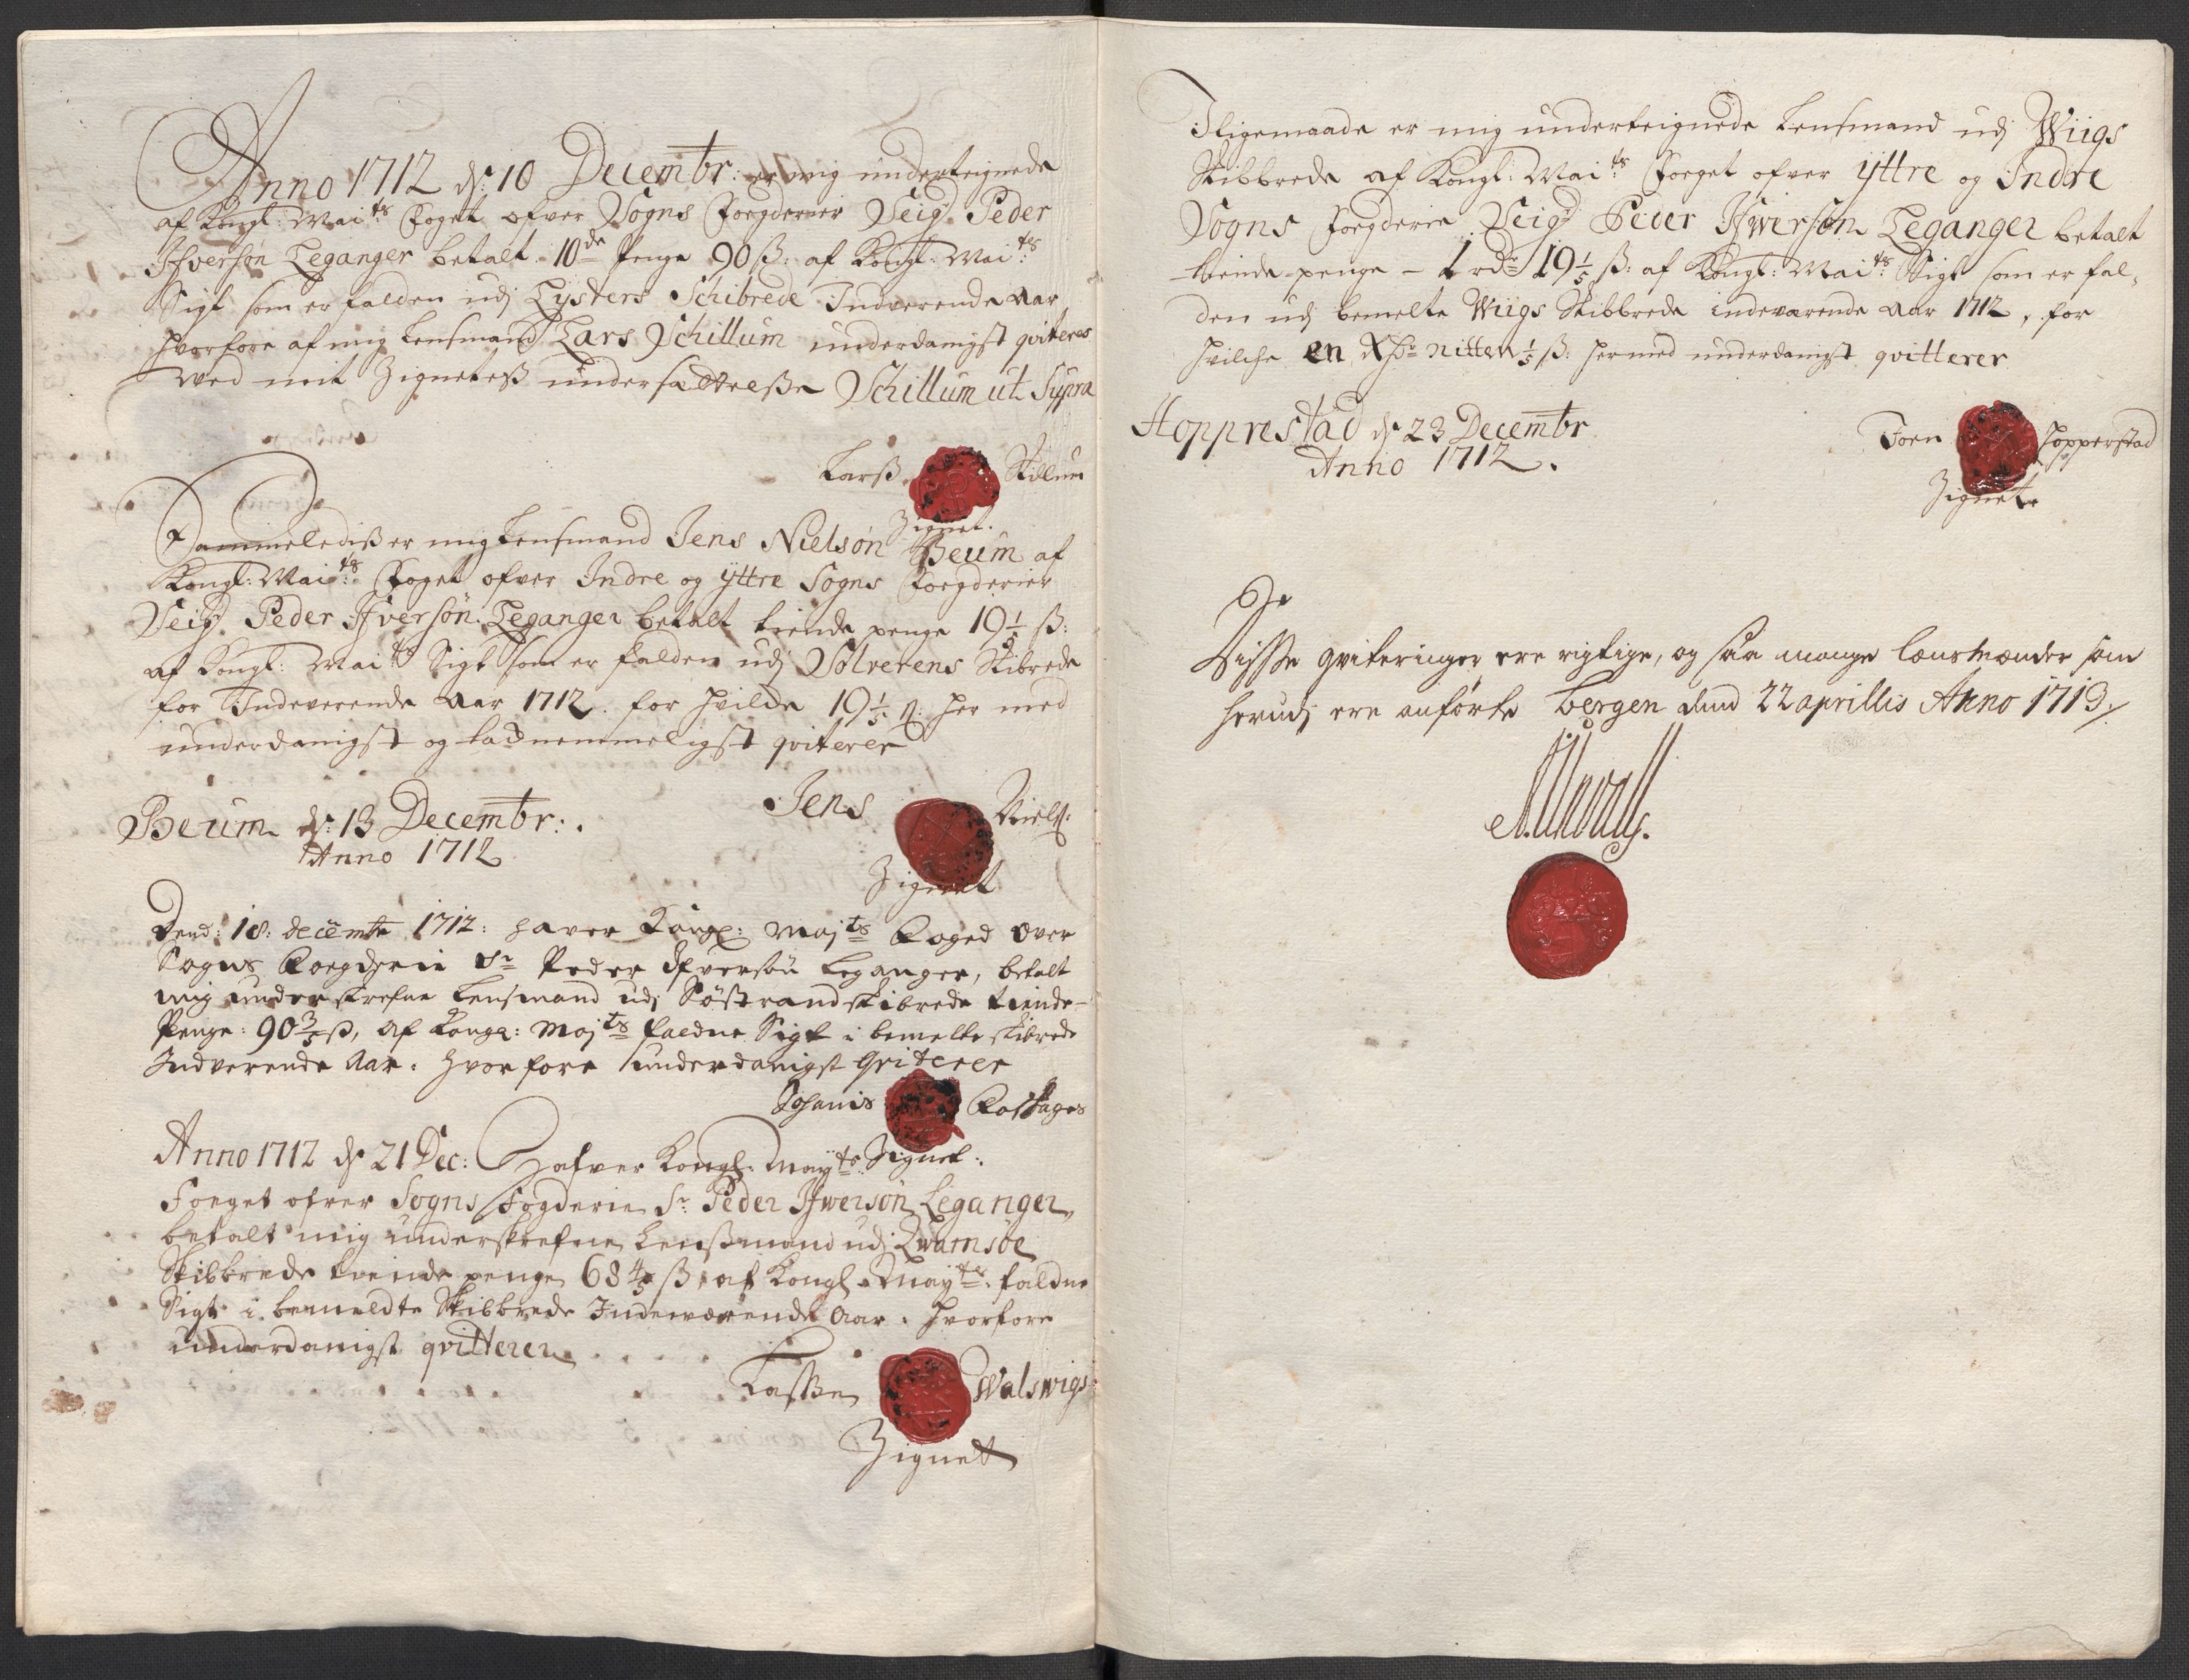 Anno 1712 d: 10 Decembr: er mig underteignede
af Kongl: Mai:ts Foget ofver Sogns Foegderier Seig.r Peder
Ifversøn Leganger betalt 10de Penge 90 ß: af Kongl: Mai:ts
Sigt som er falden udj Lysters Schibrede Indverende Aar
hvorfore af mig Lensmand Lars Schillum underdanigst qviteres
med mit Zignetes undersættelße Schillum ut Supra
Larß Skillum
Zignet.
Sammeledis er mig Lensmand Jens Nielsøn Beum af
Kongl: Mai:ts Foget ofver Indre og Yttre Sogns Foegderier
Seig.r Peder Ifversøn Leganger betalt tiende penge 19 1/5 ß:
af Kongl: Mai:ts Sigt som er falden udj Solverens Skibrede
for Indeverende Aar 1712. for hvilde 19 1/5 ß: her med
underdanigst og tacknemmeligst qviterer
Beum d: 13 Decembr:.
Anno 1712
Jens Nielß:
Zignet
Dend: 18: decembr 1712: haver Kongl: Maj:ts Foged over
Sogns Foegderie Sr Peder Ifversøn Leganger, betalt
mig underskrefne Lensmand udj Søstrand skibrede tiende-
Penge: 90 3/5 ß, af Kongl: Maj:ts faldne Sigt i bemelte skibrede
Indverende Aar. hvorfore underdanigst Qviterer
Johanis
Zignet.
Anno 1712 d: 21 Dec: hafver Kongl: May:ts
Foeget ofver Sogns Fogderie Sr. Peder Ifwersøn Leganger,
betalt mig underskrefne Lenßmand udj Qwamsøe
Skibbrede tiende penge 68 4/5 ß, af Kongl. May:ts faldne
Sigt i bemeldte Skibbrede Indewærende Aar. hvorfore
underdanigst qvitterer
Lasse Walswigs
Zignet
Iligemaade er mig underteignede Lensmand udj Wiigs
Skibbrede af Kongl: Mai:ts Foeget ofver Yttre og Indre
Sogns Foegderie Seig.r Peder Ifwersøn Leganger betalt
tiende penge - 1 rdr 19 1/5 ß: af Kongl: Mai:ts Sigt som er fal,
den udj bemelte Wiigs Skibbrede indeværende Aar 1712, for
hvilche en Rdr nitten 1/5 ß: hermed underdanigst qvitterer
Hopprestad d: 23 Decembr
Anno 1712.
Joen Hopperstad
Zignet
At
Disse qviteringer ere rigtige, og saa mange Lensmænder som
herudj ere anførte Bergen dend 22 aprillis Anno 1713,